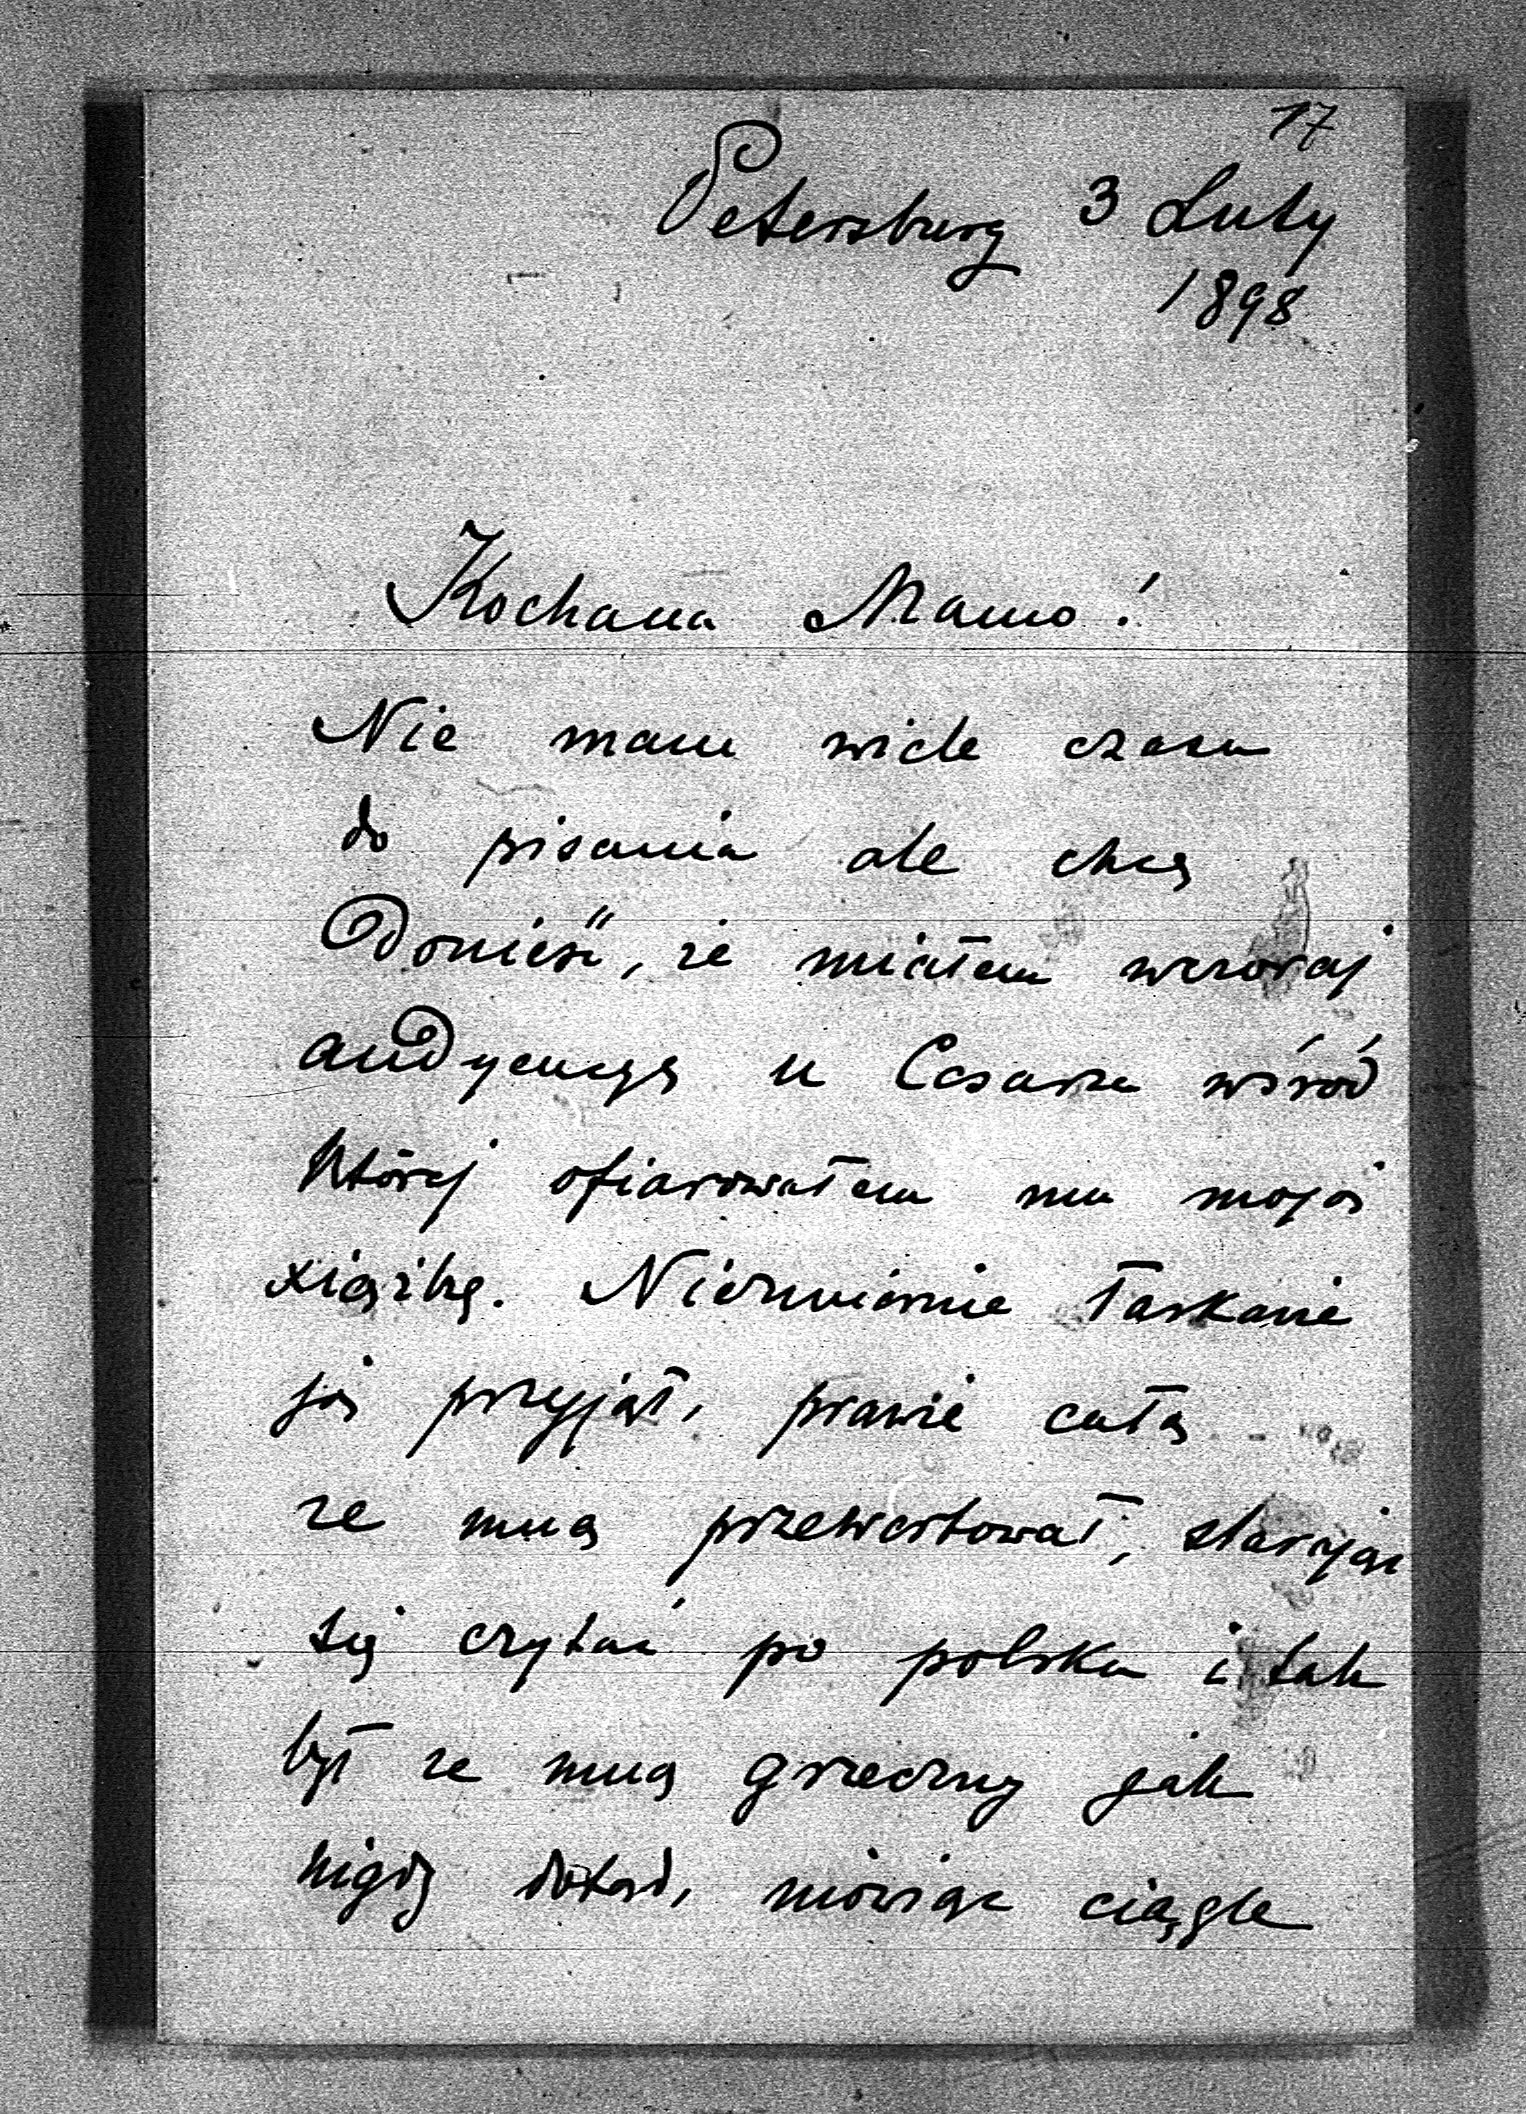 17
Petersburg 3 Luty
1898
Kochana Mamo!
Nie mam wiele czasu
do pisania ale chcę
donieść, że miałem wczoraj
audyencyę u Cesarza wśród
której ofiarowałem mu moją
xiążkę. Niezmiernie łaskawie
ją przyjął, prawie całą
ze mną przewertował, starając
się czytać po polsku i tak
był ze mną grzeczny jak
nigdy dotąd, mówiąc ciągle